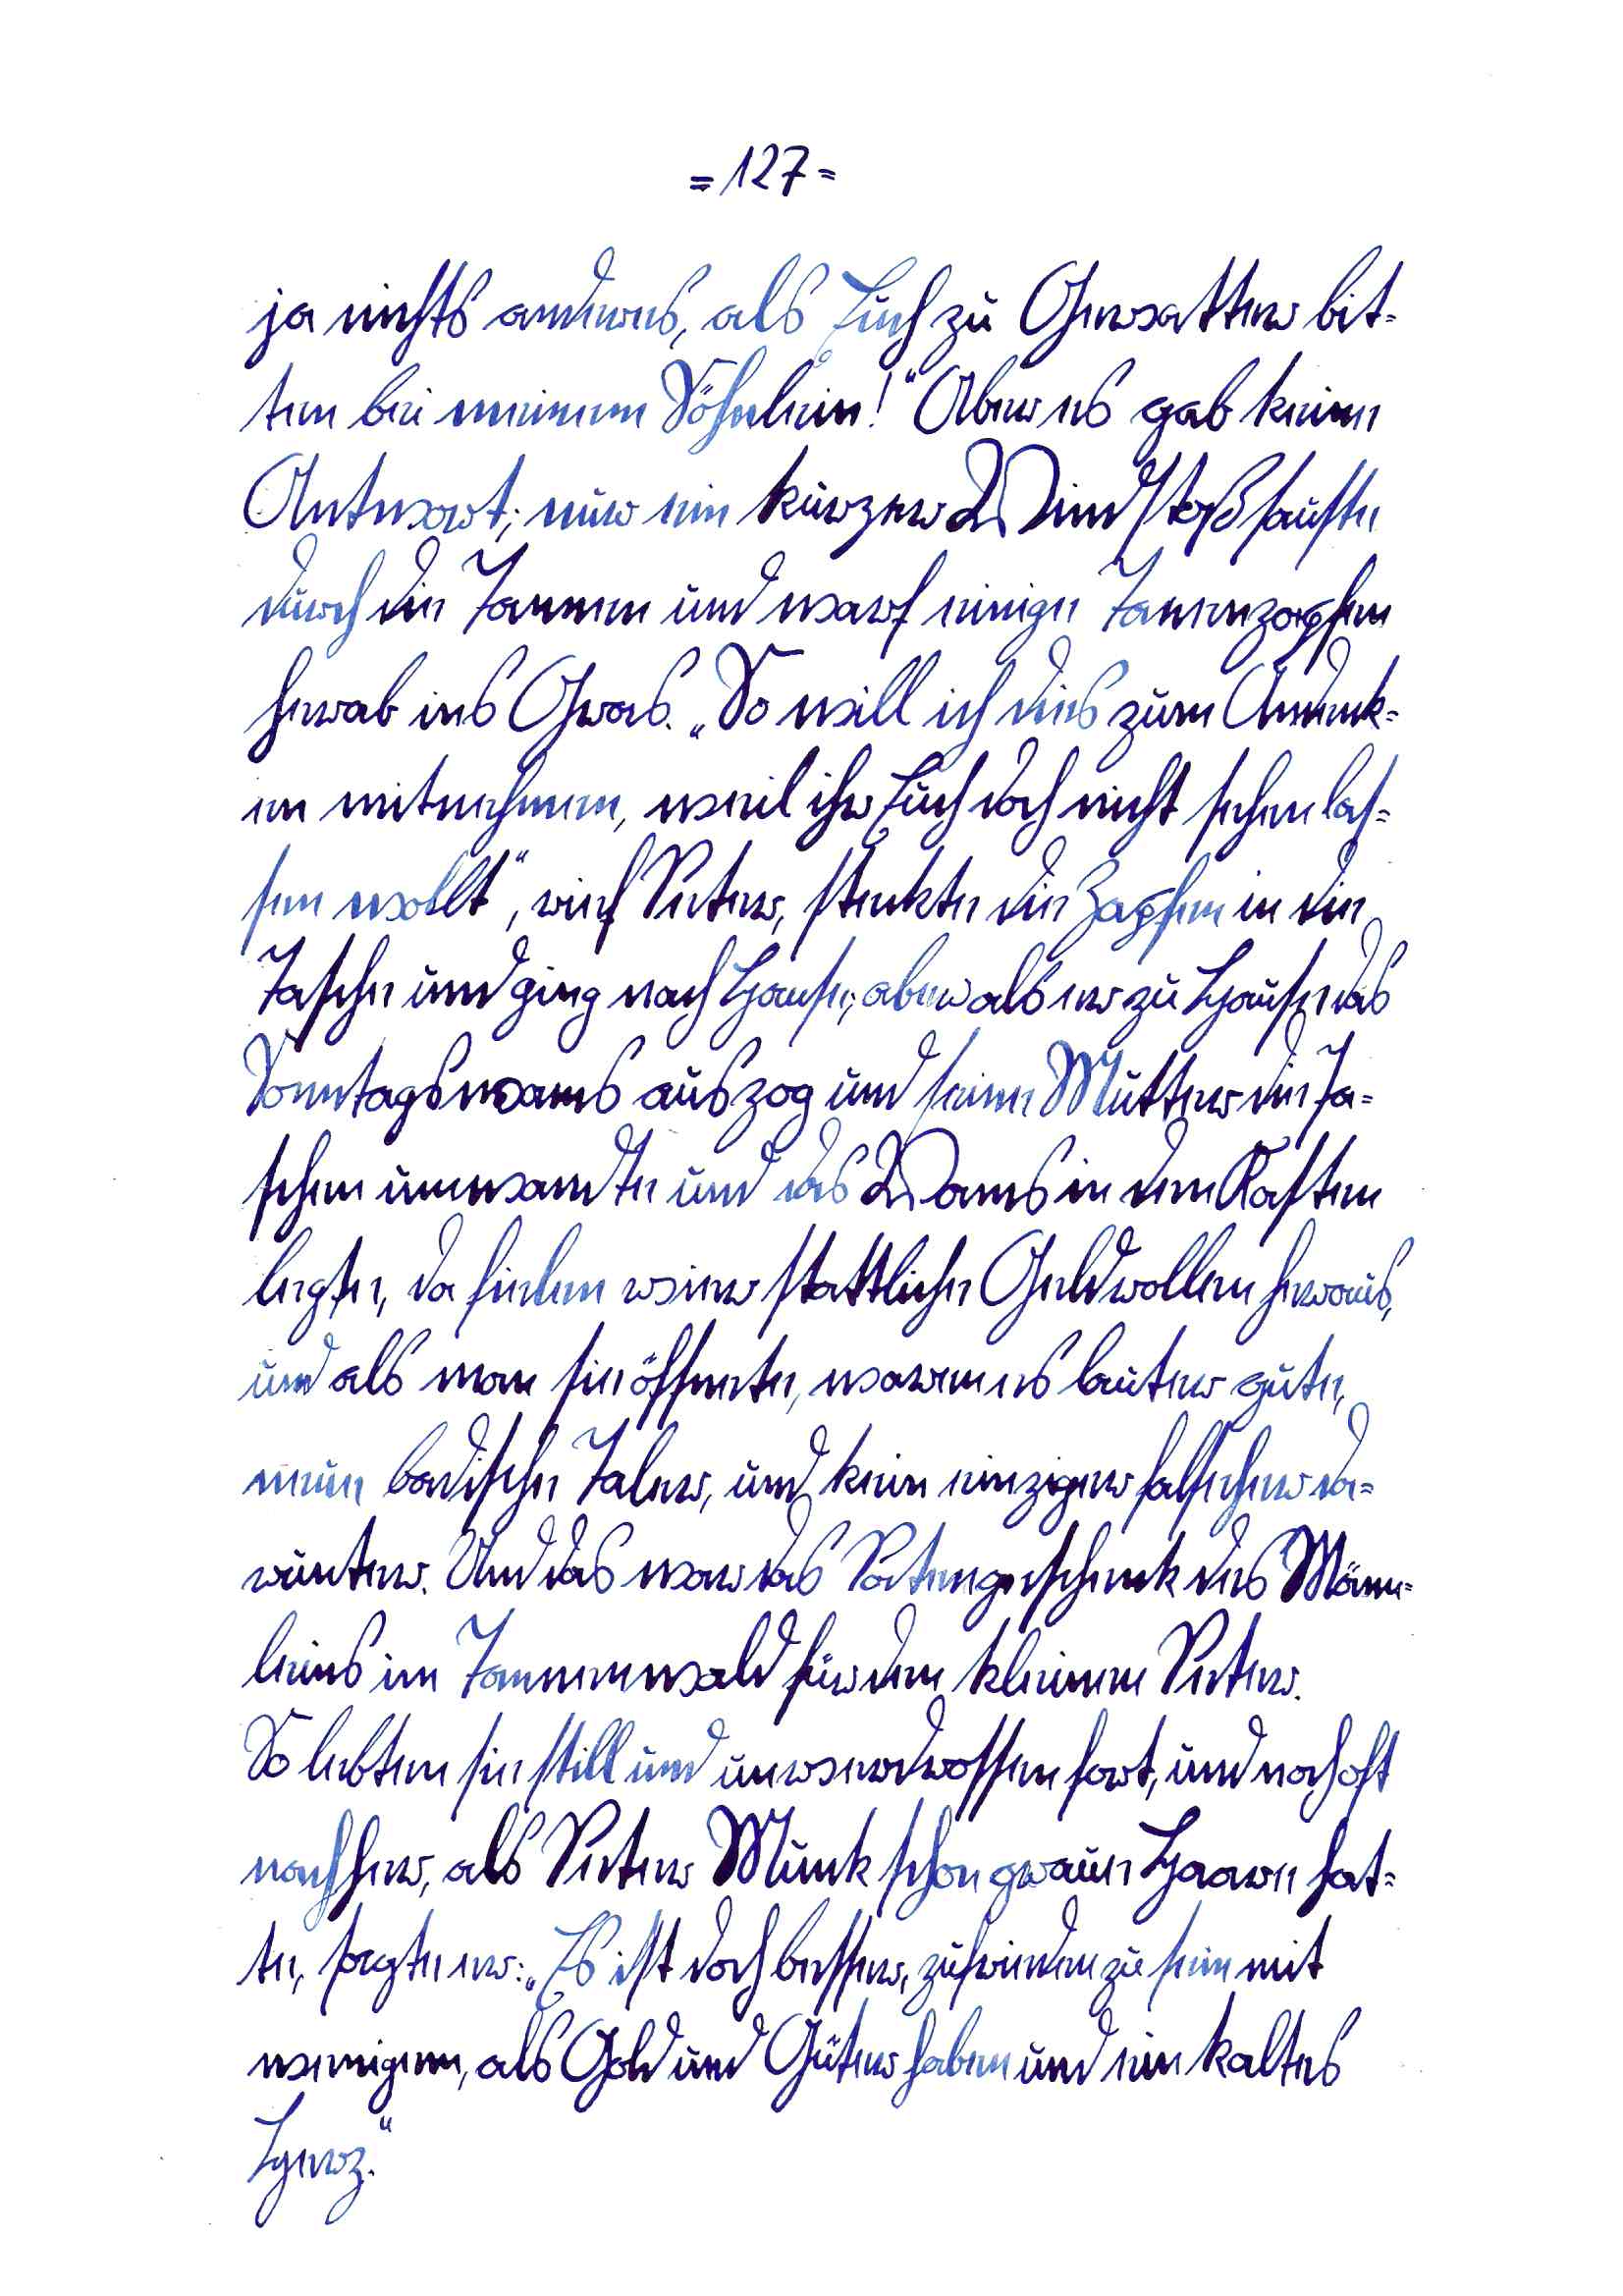 = 127 =
ja nichts anderes, als Euch zu Gevatter bit=
ten bei meinem Söhnlein!" Aber es gab keine
Antwort; nur ein kurzer Windstoß sauste
durch die Tannen und warf einige Tannenzapfen
herab ins Gras. „So will ich dies zum Andenk=
en mitnehmen, weil ihr Euch doch nicht sehen las=
sen wollt", rief Peter, steckte die Zapfen in die
Tasche und ging nach Hause; aber als er zu Hause das
Sonntagswams auszog und seine Mutter die Ta=
schen umwandte und das Wams in den Kasten
legte, da fielen vier stattliche Geldrollen heraus,
und als man sie öffnete, waren es lauter gute,
neue badische Taler, und kein einziger falscher da=
runter. Und das war das Patengeschenk des Männ=
leins im Tannenwald für den kleinen Peter.
So lebten sie still und unverdrossen fort, und noch oft
nachher, als Peter Munk schon graue Haare hat=
te, sagte er: „Es ist doch besser, zufrieden zu sein mit
wenigem, als Gold und Güter haben und ein kaltes
Herz."